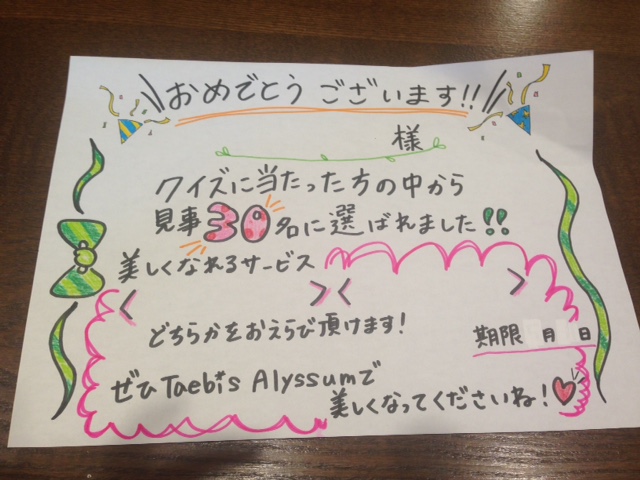 おめでとうございます!!
様
クイズに当たった方の中から
見事30名に選ばれました!!
美しくなれるサービス
< > < >
どちらかをおえらび頂けます!
期限 月 日
ぜひTaebis Alyssumで
美しくなってくださいね!